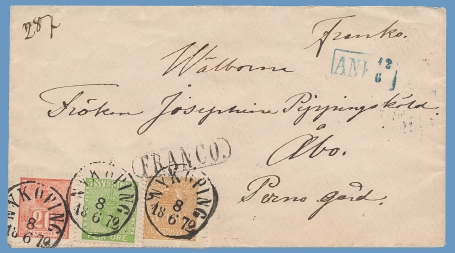 287
Franko.
ANK 12
6
Wälborna
Fröken Josephine Pippingsköld.
Åbo.
FRANCO.
Perno gård.
NYKÖPING
8
18 6 72
NYKÖPING
8
18 6 72
NYKÖPING
8
18 6 72
FEM ÖRE